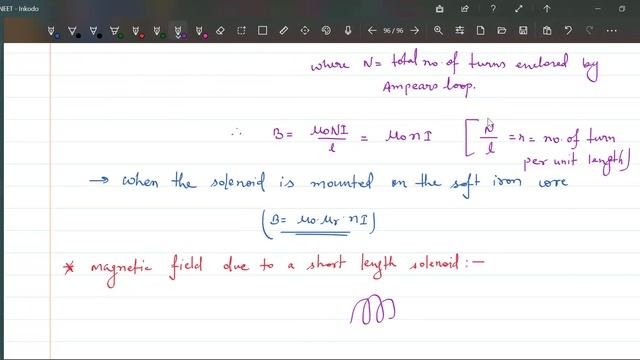 NEET - Inkodo
96 / 96
where N = total no. of turns enclosed by
Ampears loop.
∴ B = μ0NI/l = μ0nI [N/l = n = no. of turn
per unit length]
→ when the solenoid is mounted on the soft iron core
(B = μ0·μr·nI)
* magnetic field due to a short length solenoid :-